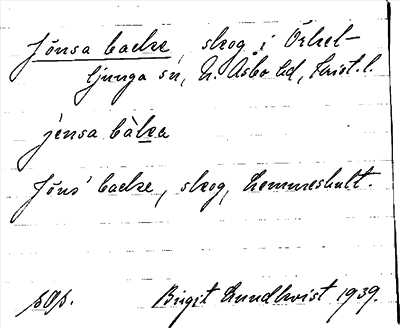 Jönsa backe, skog i Örkel-
ljunga sn, N. Åsbo hd, Krist. l.
jensa bàka
Jöns' backe, skog, Lemmeshult.
sOs. Birgit Lundkvist 1939.